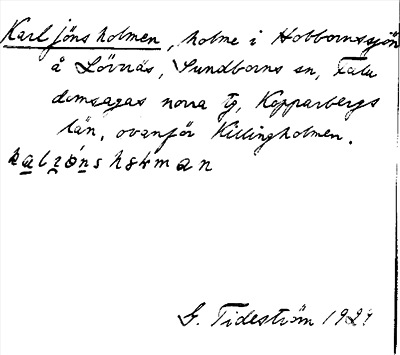 Karljönsholmen, holme i Hobbornssjön
å Lövnäs, Sundborns sn, Falu
domsagas norra tg, Kopparbergs
län, ovanför Killingholmen.
G. Tideström 192